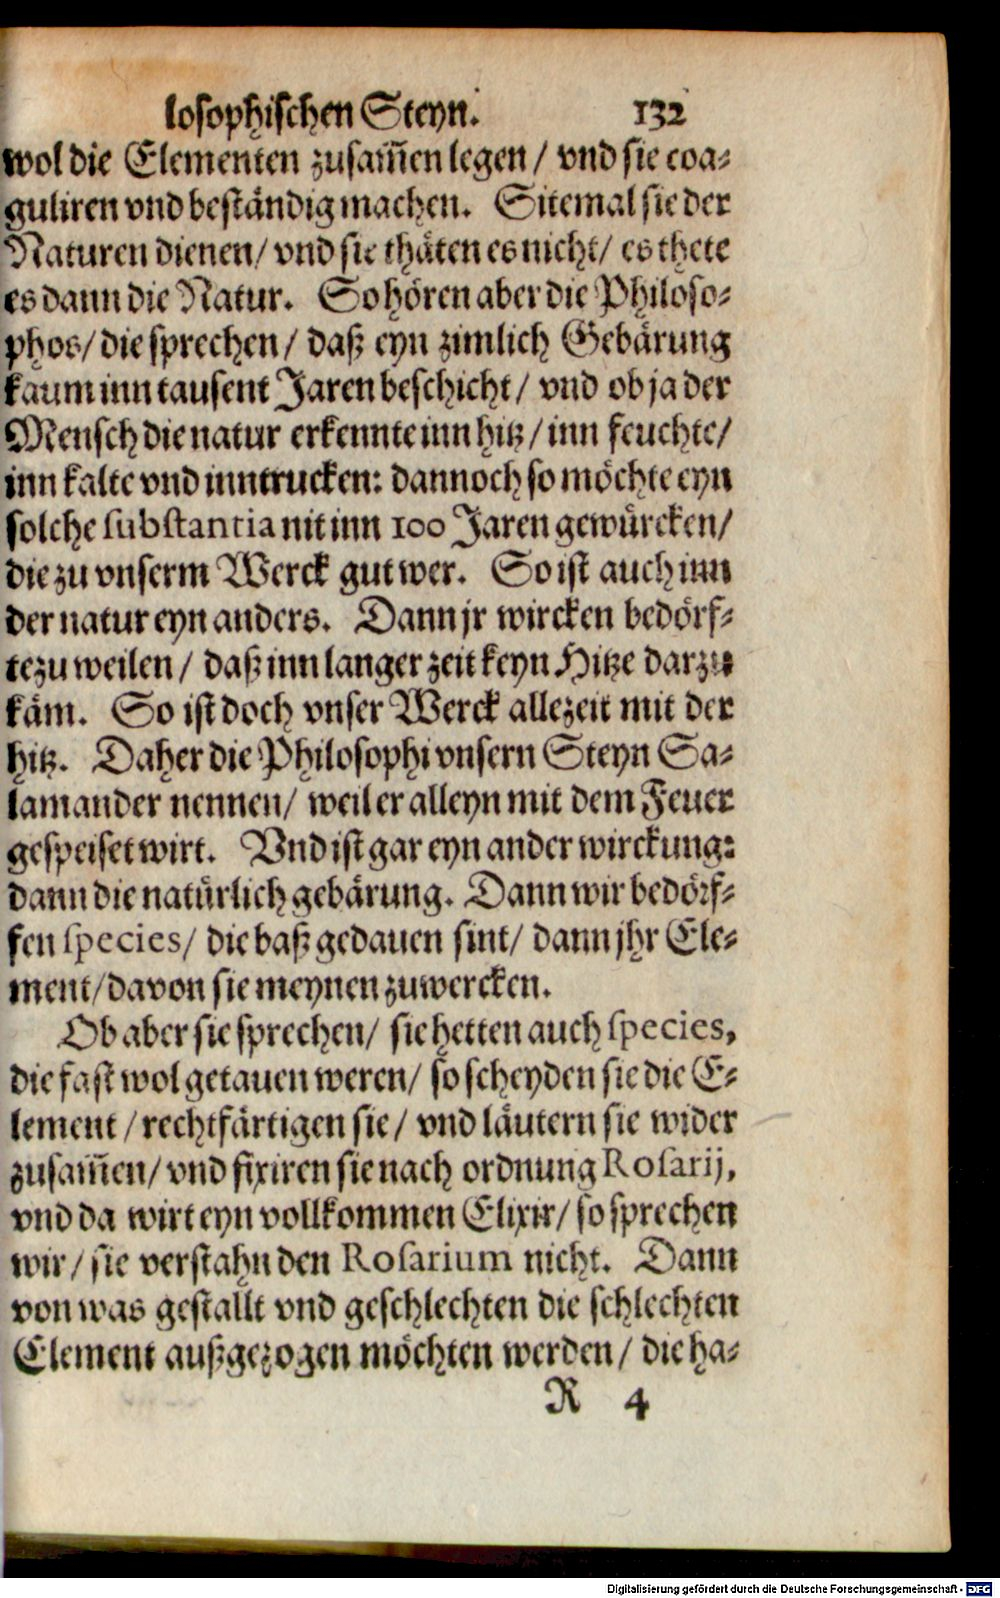 losophischen Steyn. 132
wol die Elementen zusam̄en legen / vnd sie coa-
guliren vnd beständig machen. Sitemal sie der
Naturen dienen / vnd sie thäten es nicht / es thete
es dann die Natur. So hören aber die Philoso-
phos / die sprechen / daß eyn zimlich Gebärung
kaum inn tausent Jaren beschicht / vnd ob ja der
Mensch die natur erkennte inn hitz / inn feuchte /
inn kalte vnd inn trucken: dannoch so möchte eyn
solche substantia nit inn 100 Jaren gewürcken /
die zu vnserm Werck gut wer. So ist auch inn
der natur eyn anders. Dann jr wircken bedörf-
te zu weilen / daß inn langer zeit keyn Hitze darzu
käm. So ist doch vnser Werck allezeit mit der
hitz. Daher die Philosophi vnsern Steyn Sa-
lamander nennen / weil er alleyn mit dem Feuer
gespeiset wirt. Vnd ist gar eyn ander wirckung:
dann die natürlich gebärung. Dann wir bedörf-
fen species / die baß gedauen sint / dann jhr Ele-
ment / davon sie meynen zuwercken.
Ob aber sie sprechen / sie hetten auch species,
die fast wol getauen weren / so scheyden sie die E-
lement / rechtfärtigen sie / vnd läutern sie wider
zusam̄en / vnd fixiren sie nach ordnung Rosarij,
vnd da wirt eyn vollkommen Elixir / so sprechen
wir / sie verstahn den Rosarium nicht. Dann
von was gestallt vnd geschlechten die schlechten
Element außgezogen möchten werden / die ha-
R 4
Digitalisierung gefördert durch die Deutsche Forschungsgemeinschaft - DFG